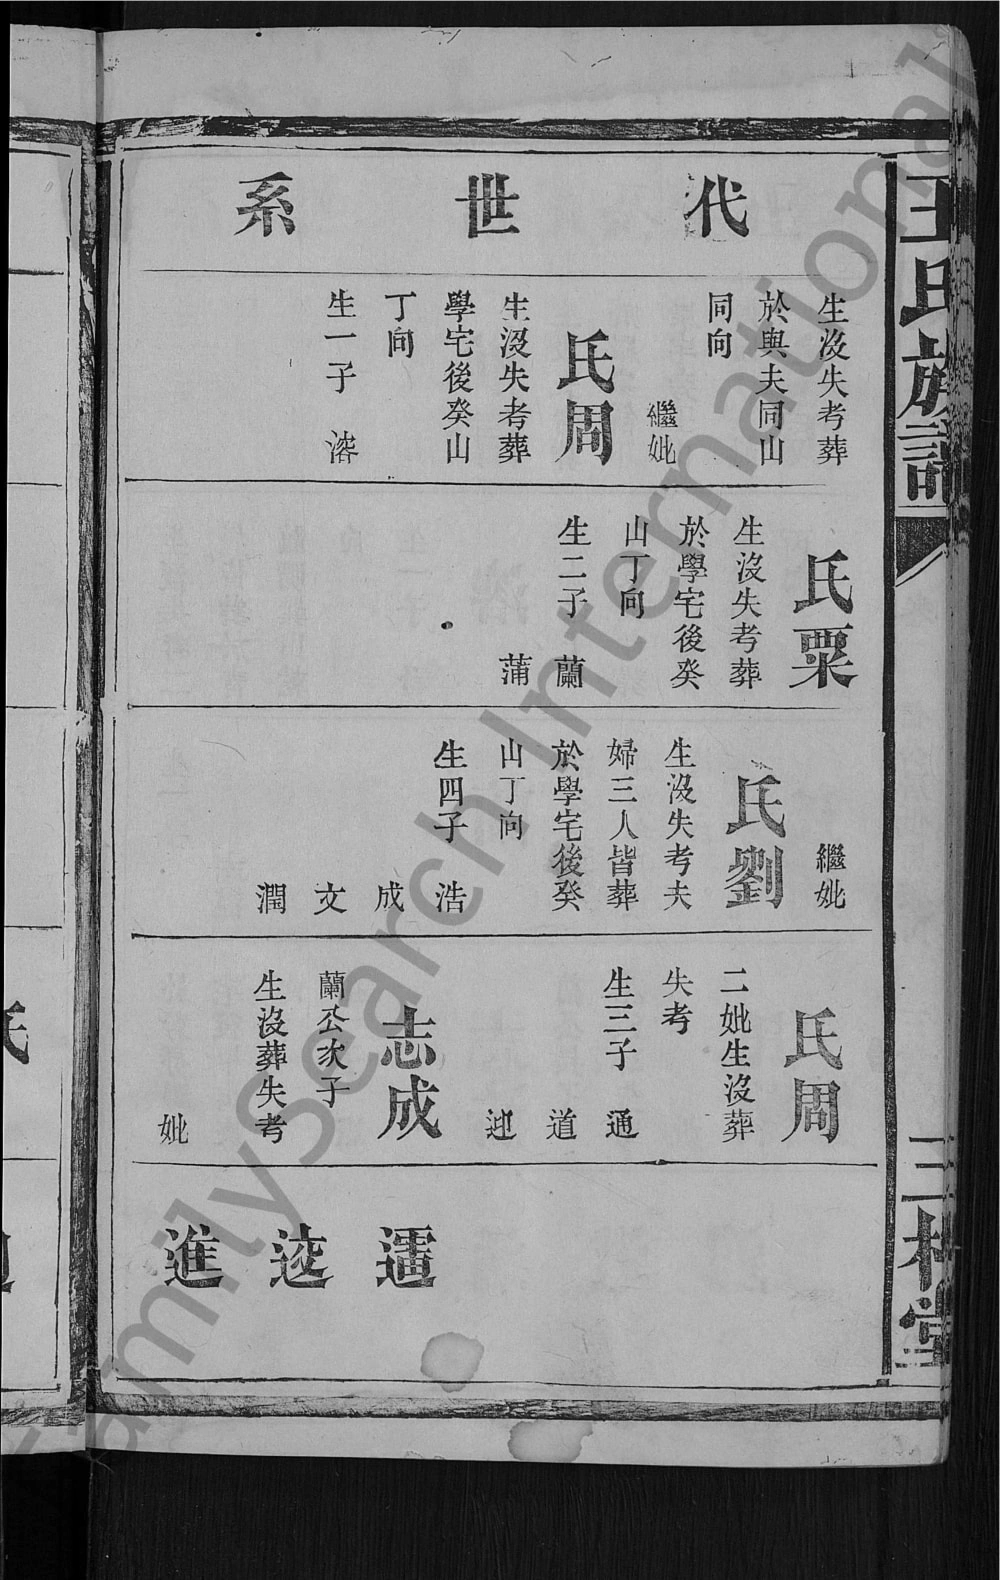 王氏族譜
三槐堂
代世系
生沒失考葬
於與夫同山
同向
繼妣
氏周
生沒失考葬
學宅後癸山
丁向
生一子 溶
氏粟
生沒失考葬
於學宅後癸
山丁向
生二子 蘭
蒲
繼妣
氏劉
生沒失考夫
婦三人皆葬
於學宅後癸
山丁向
生四子 浩
成
文
潤
氏周
二妣生沒葬
失考
生三子 通
道
志成
蘭公次子
生沒葬失考
妣
進
FamilySearch International